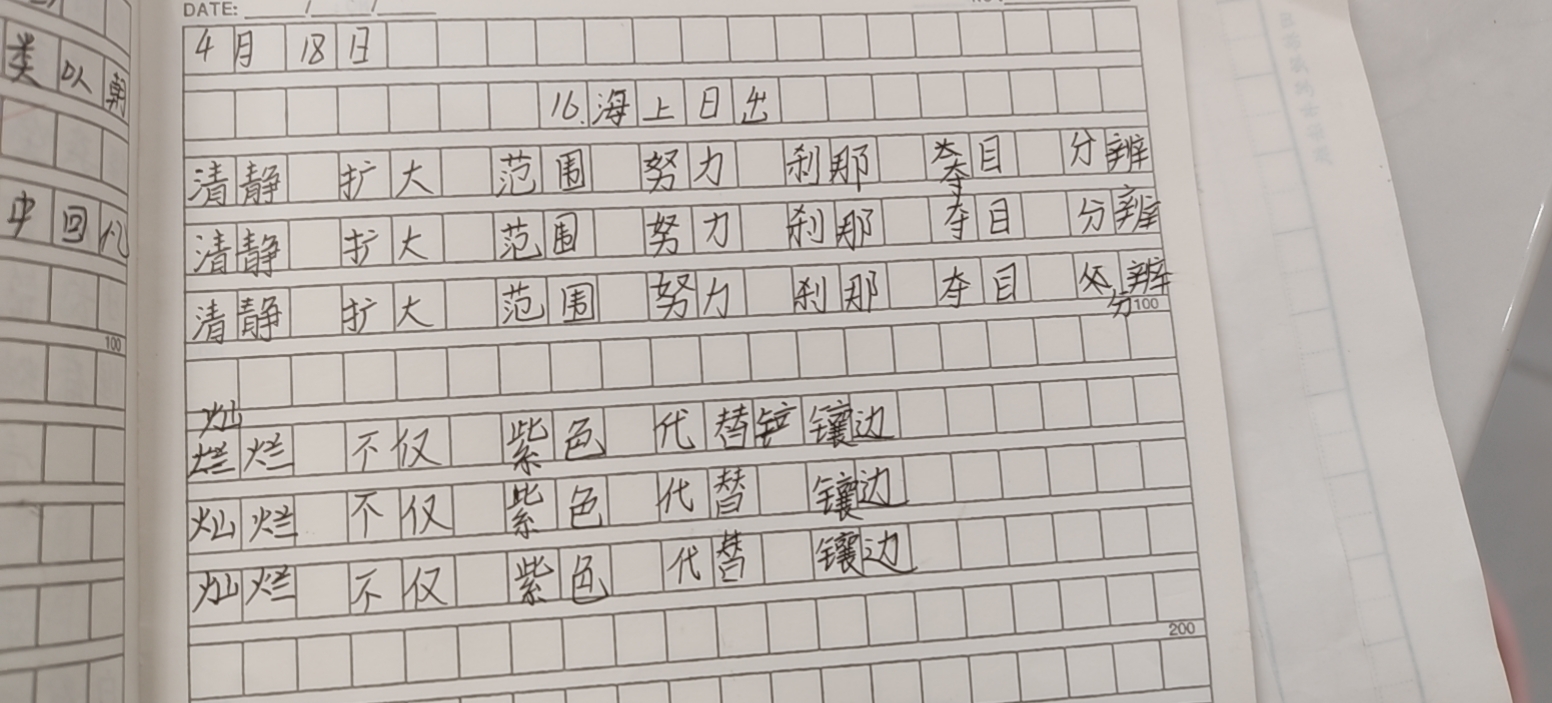 DATE: / /
4月18日
16.海上日出
清静 扩大 范围 努力 刹那 夺目 分辨
清静 扩大 范围 努力 刹那 夺目 分辨
清静 扩大 范围 努力 刹那 夺目 分辨
100
灿烂 不仅 紫色 代替 镶边
灿烂 不仅 紫色 代替 镶边
灿烂 不仅 紫色 代替 镶边
200
类以朝
中回忆
100